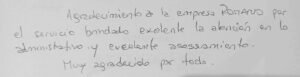 Agradecimiento a la empresa Romanos por
el servicio brindado exelente la atención en lo
administrativo y exelente asesoramiento.
Muy agradecido por todo.